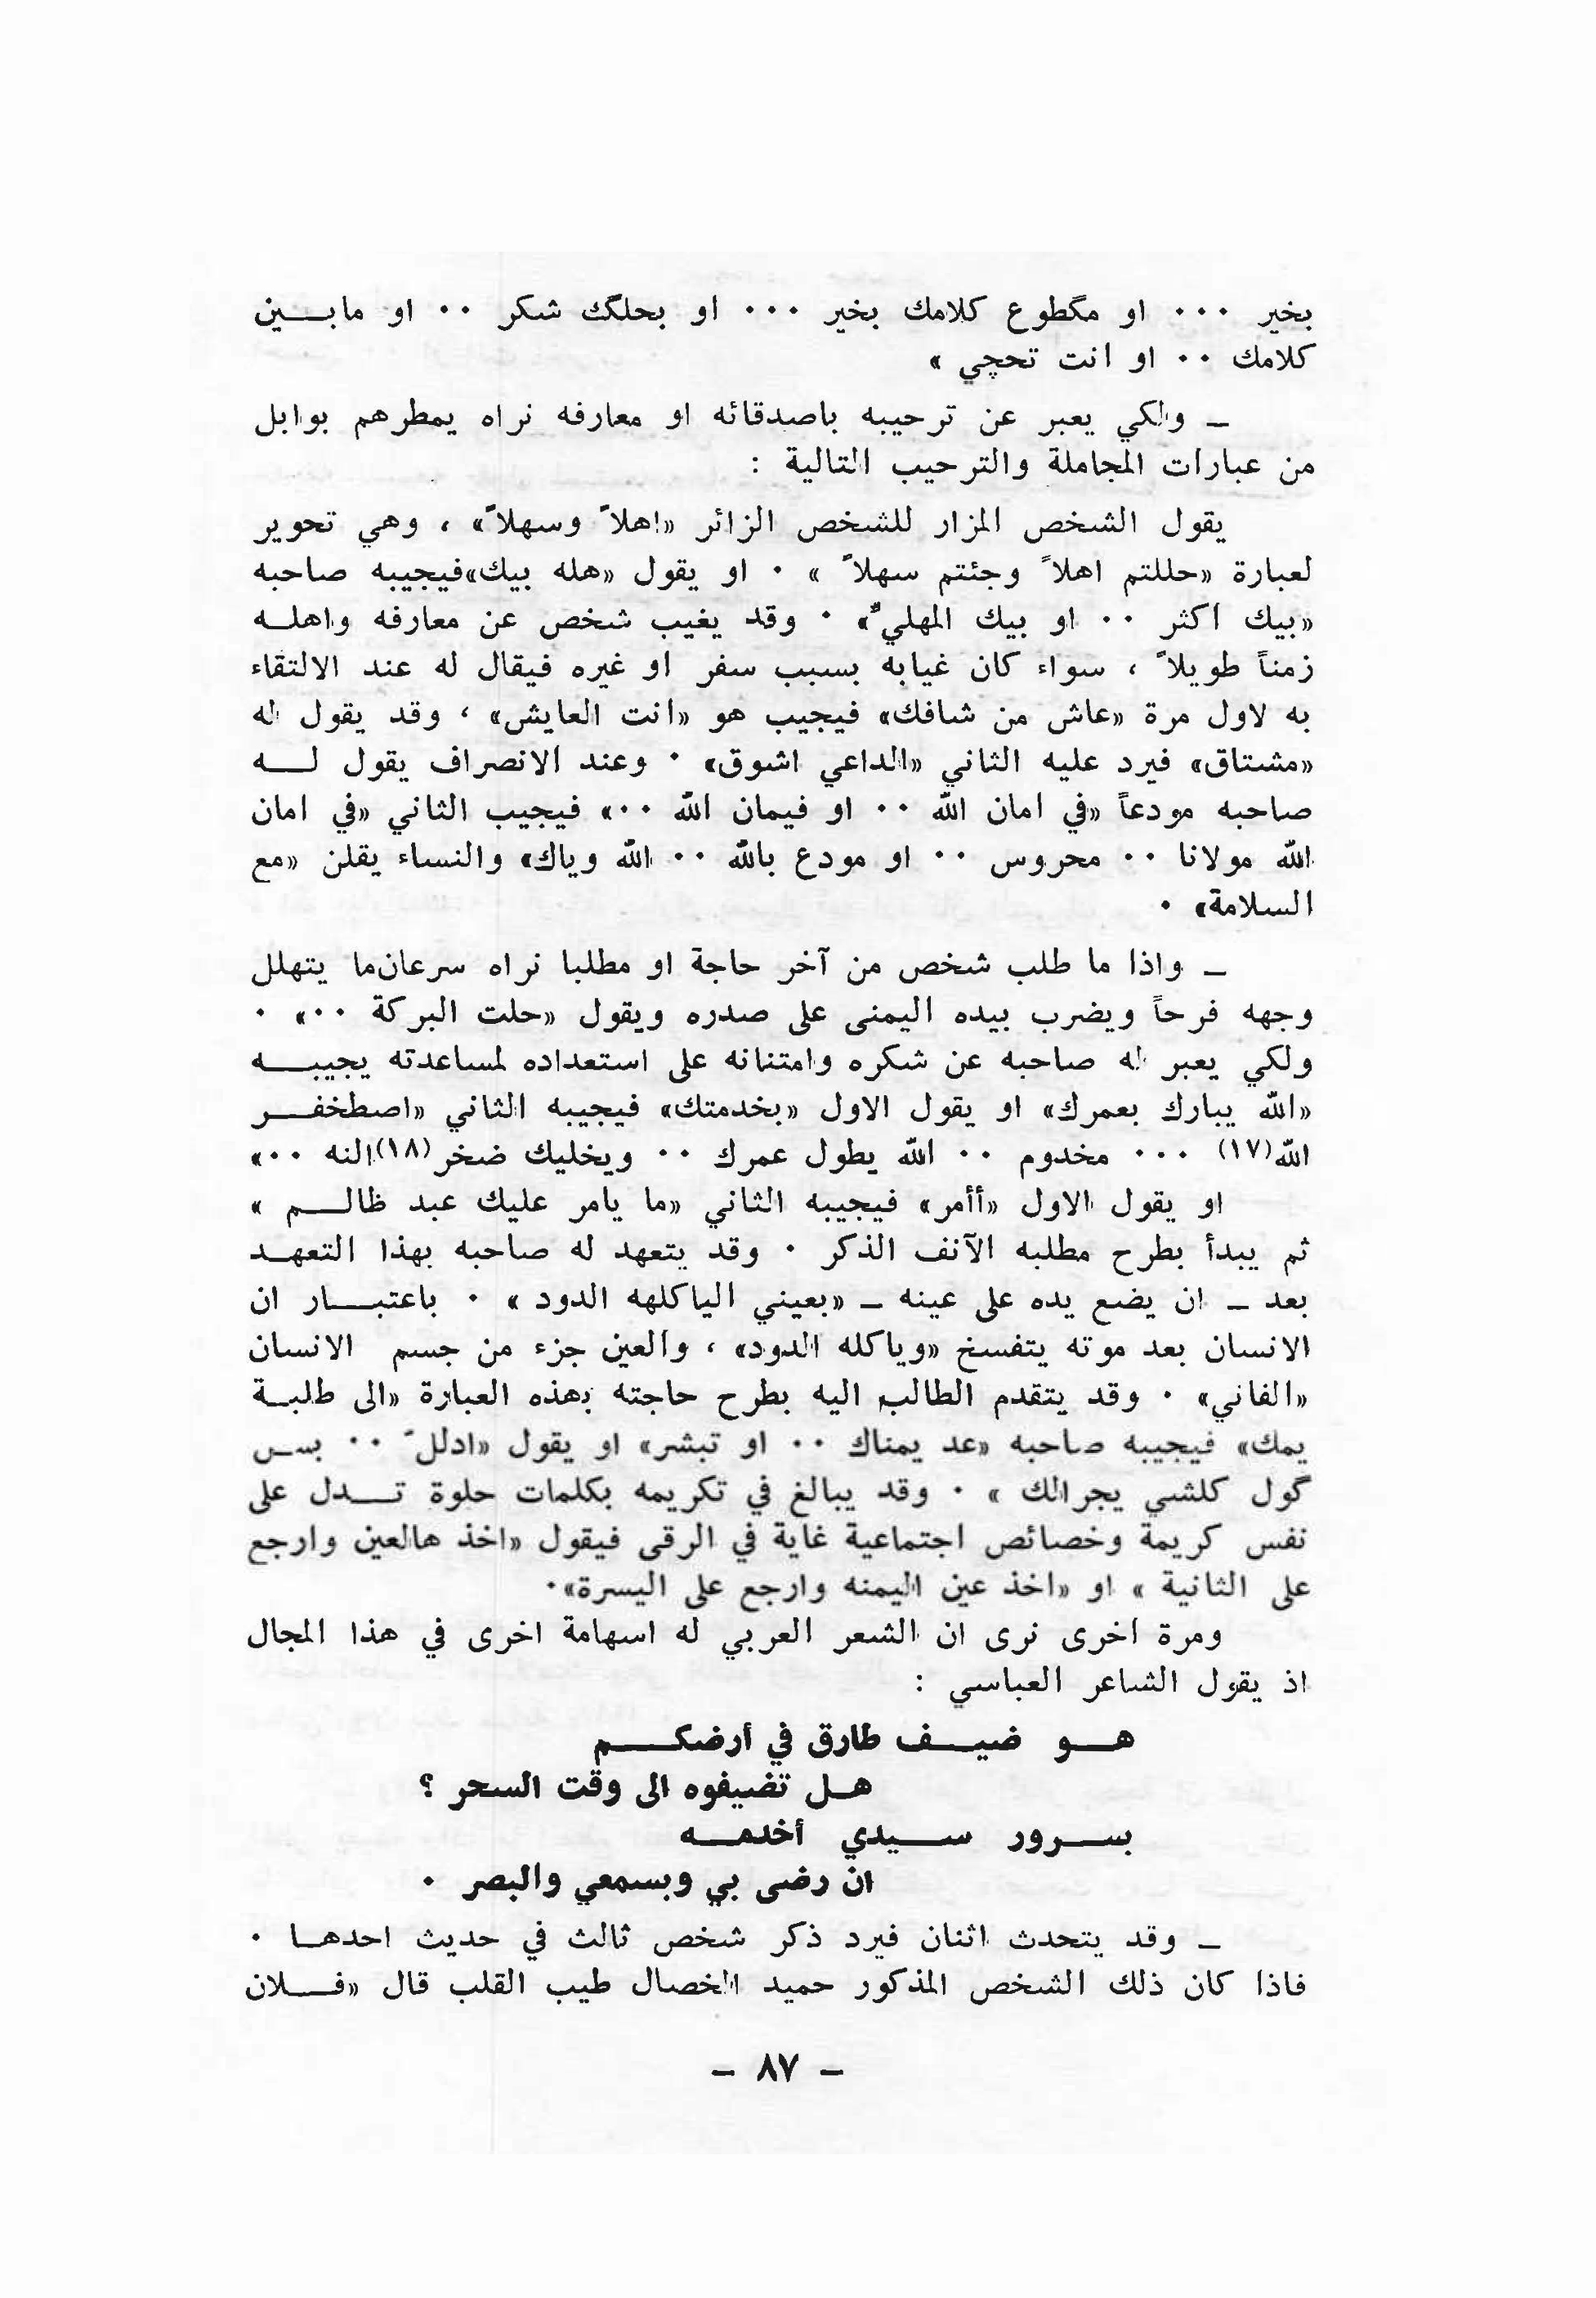 بخير ٠٠٠ او مگطوع كلامك بخير ٠٠٠ او بحلگك شكر ٠٠ او مابــين
كلامك ٠٠ او انت تحچي »
ـ ولكي يعبر عن ترحيبه باصدقائه او معارفه نراه يمطرهم بوابل
من عبارات المجاملة والترحيب التالية :
يقول الشخص المزار للشخص الزائر «اهلاً وسهلاً» ، وهي تحوير
لعبارة «حللتم اهلاً وجئتم سهلاً » ٠ او يقول «هله بيك»فيجيبه صاحبه
«بيك اكثر ٠٠ او بيك المهلي» ٠ وقد يغيب شخص عن معارفه واهلـه
زمناً طويلاً ، سواء كان غيابه بسبب سفر او غيره فيقال له عند الالتقاء
به لاول مرة «عاش من شافك» فيجيب هو «انت العايش» ، وقد يقول له
«مشتاق» فيرد عليه الثاني «الداعي اشوق» ٠ وعند الانصراف يقول لــه
صاحبه مودعاً «في امان الله ٠٠ او فيمان الله ٠٠» فيجيب الثاني «في امان
الله مولانا ٠٠ محروس ٠٠ او مودع بالله ٠٠ الله وياك» والنساء يقلن «مع
السلامة» ٠
ـ واذا ما طلب شخص من آخر حاجة او مطلبا نراه سرعان‌ما يتهلل
وجهه فرحاً ويضرب بيده اليمنى على صدره ويقول «حلت البركة ٠٠» ٠
ولكي يعبر له صاحبه عن شكره وامتنانه على استعداده لمساعدته يجيبــه
«الله يبارك بعمرك» او يقول الاول «بخدمتك» فيجيبه الثاني «اصطخفــر
الله(١٧) ٠٠٠ مخدوم ٠٠ الله يطول عمرك ٠٠ ويخليك ضخر(١٨)النه ٠٠»
او يقول الاول «أأمر» فيجيبه الثاني «ما يامر عليك عبد ظالــم »
ثم يبدأ بطرح مطلبه الآنف الذكر ٠ وقد يتعهد له صاحبه بهذا التعهـد
بعد ـ ان يضع يده على عينه ـ «بعيني الياكلهه الدود » ٠ باعتبــار ان
الانسان بعد موته يتفسخ «وياكله الدود» ، والعين جزء من جسم الانسان
«الفاني» ٠ وقد يتقدم الطالب اليه بطرح حاجته بهذه العبارة «الى طلبـة
يمك» فيجيبه صاحبه «عد يمناك ٠٠ او تبشر» او يقول «ادللّ ٠٠ بـس
گول كلشي يجرالك » ٠ وقد يبالغ في تكريمه بكلمات حلوة تــدل على
نفس كريمة وخصائص اجتماعية غاية في الرقى فيقول «اخذ هالعين وارجع
على الثانية » او «اخذ عين اليمنه وارجع على اليسرة»٠
ومرة اخرى نرى ان الشعر العربي له اسهامة اخرى في هذا المجال
اذ يقول الشاعر العباسي :
هــو ضيــف طارق في أرضكــم
هـل تضيفوه الى وقت السحر ؟
بســرور ســيدي أخدمــه
ان رضى بي وبسمعي والبصر ٠
ـ وقد يتحدث اثنان فيرد ذكر شخص ثالث في حديث احدهـا ٠
فاذا كان ذلك الشخص المذكور حميد الخصال طيب القلب قال «فــلان
ـ ٨٧ ـ